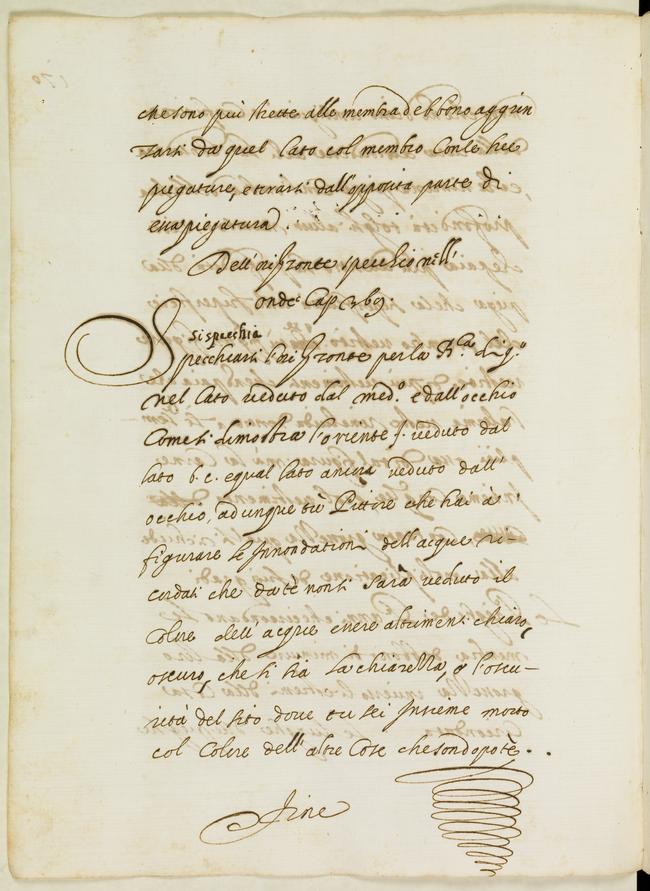 che sono più strette alle membra debbono aggrin
zarsi da quel lato col membro con le sue
piegature, e tirarsi dall'opposita parte di
essa piegatura.
Dell'orizonte specchio nell'
onde Cap. 369.
si specchia
Specchiarsi l'orizonte per la
nel lato veduto dal med.º e dall'occhio
come si dimostra l'oriente f. veduto dal
lato b. c. equal lato ancora veduto dall'
occhio, adunque tù Pittore che hai à
figurare le Innondationi dell'acque ri-
cordati che da tè non si sarà veduto il
colore dell'acque essere altrimenti chiaro,
oscuro, che si sia la chiarezza, o l'oscu-
rità del sito dove tu sei Insieme misto
col colore dell'altre cose che sondopo tè.
Fine